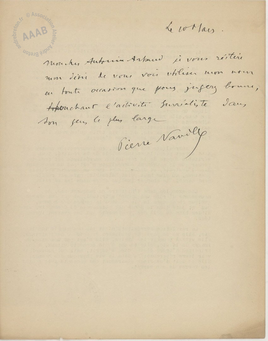 AAAB
Le 10 Mars.
Mon cher Antonin Artaud je vous réitère
mon désir de vous voir utiliser mon nom
en toute occasion que vous jugerez bonne,
touchant l'activité surréaliste dans
son sens le plus large
Pierre Naville